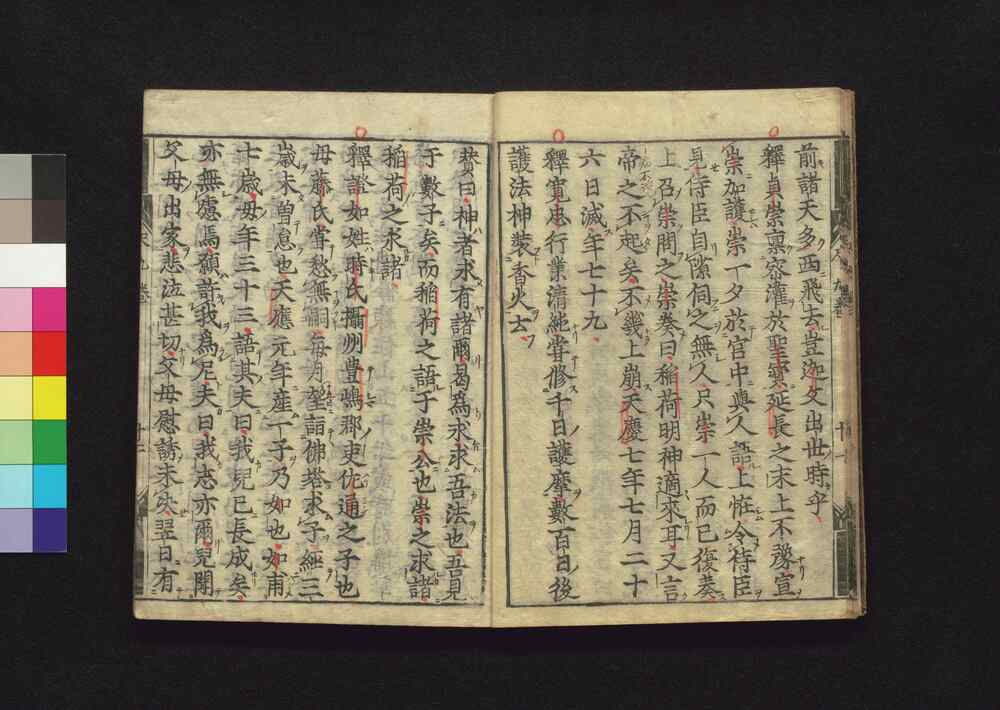 前諸天多西飛去豈迦文出世時乎
釋貞崇禀密灌於聖寳延長之末上不豫宣
崇加護崇一夕於宮中與人語上恠令侍臣
侍臣自隙伺之無人只崇一人而已復奏
上召崇問之崇奏曰稲荷明神適來耳又言
帝之不起矣不幾上崩天慶七年七月二十
六日滅年七十九
釋寛忠行業清純甞修千日護摩數百日後
護法神裝香火云
賛曰神者求有諸爾曷為求求吾法也吾見
于數子矣而稲荷之語于崇公也崇之求諸
稲荷之求諸
釋證如姓時氏攝州豊嶋郡吏佐通之子也
母藤氏甞愁無嗣毎月詣佛塔求子經三
歳未曽怠也天應元年産一子乃如也如甫
七歳母年三十三語其夫曰我兒已長成矣
亦無慮焉願許我為尼夫曰我志亦爾兒聞
父母出家悲泣甚切父母慰誘未央翌日有